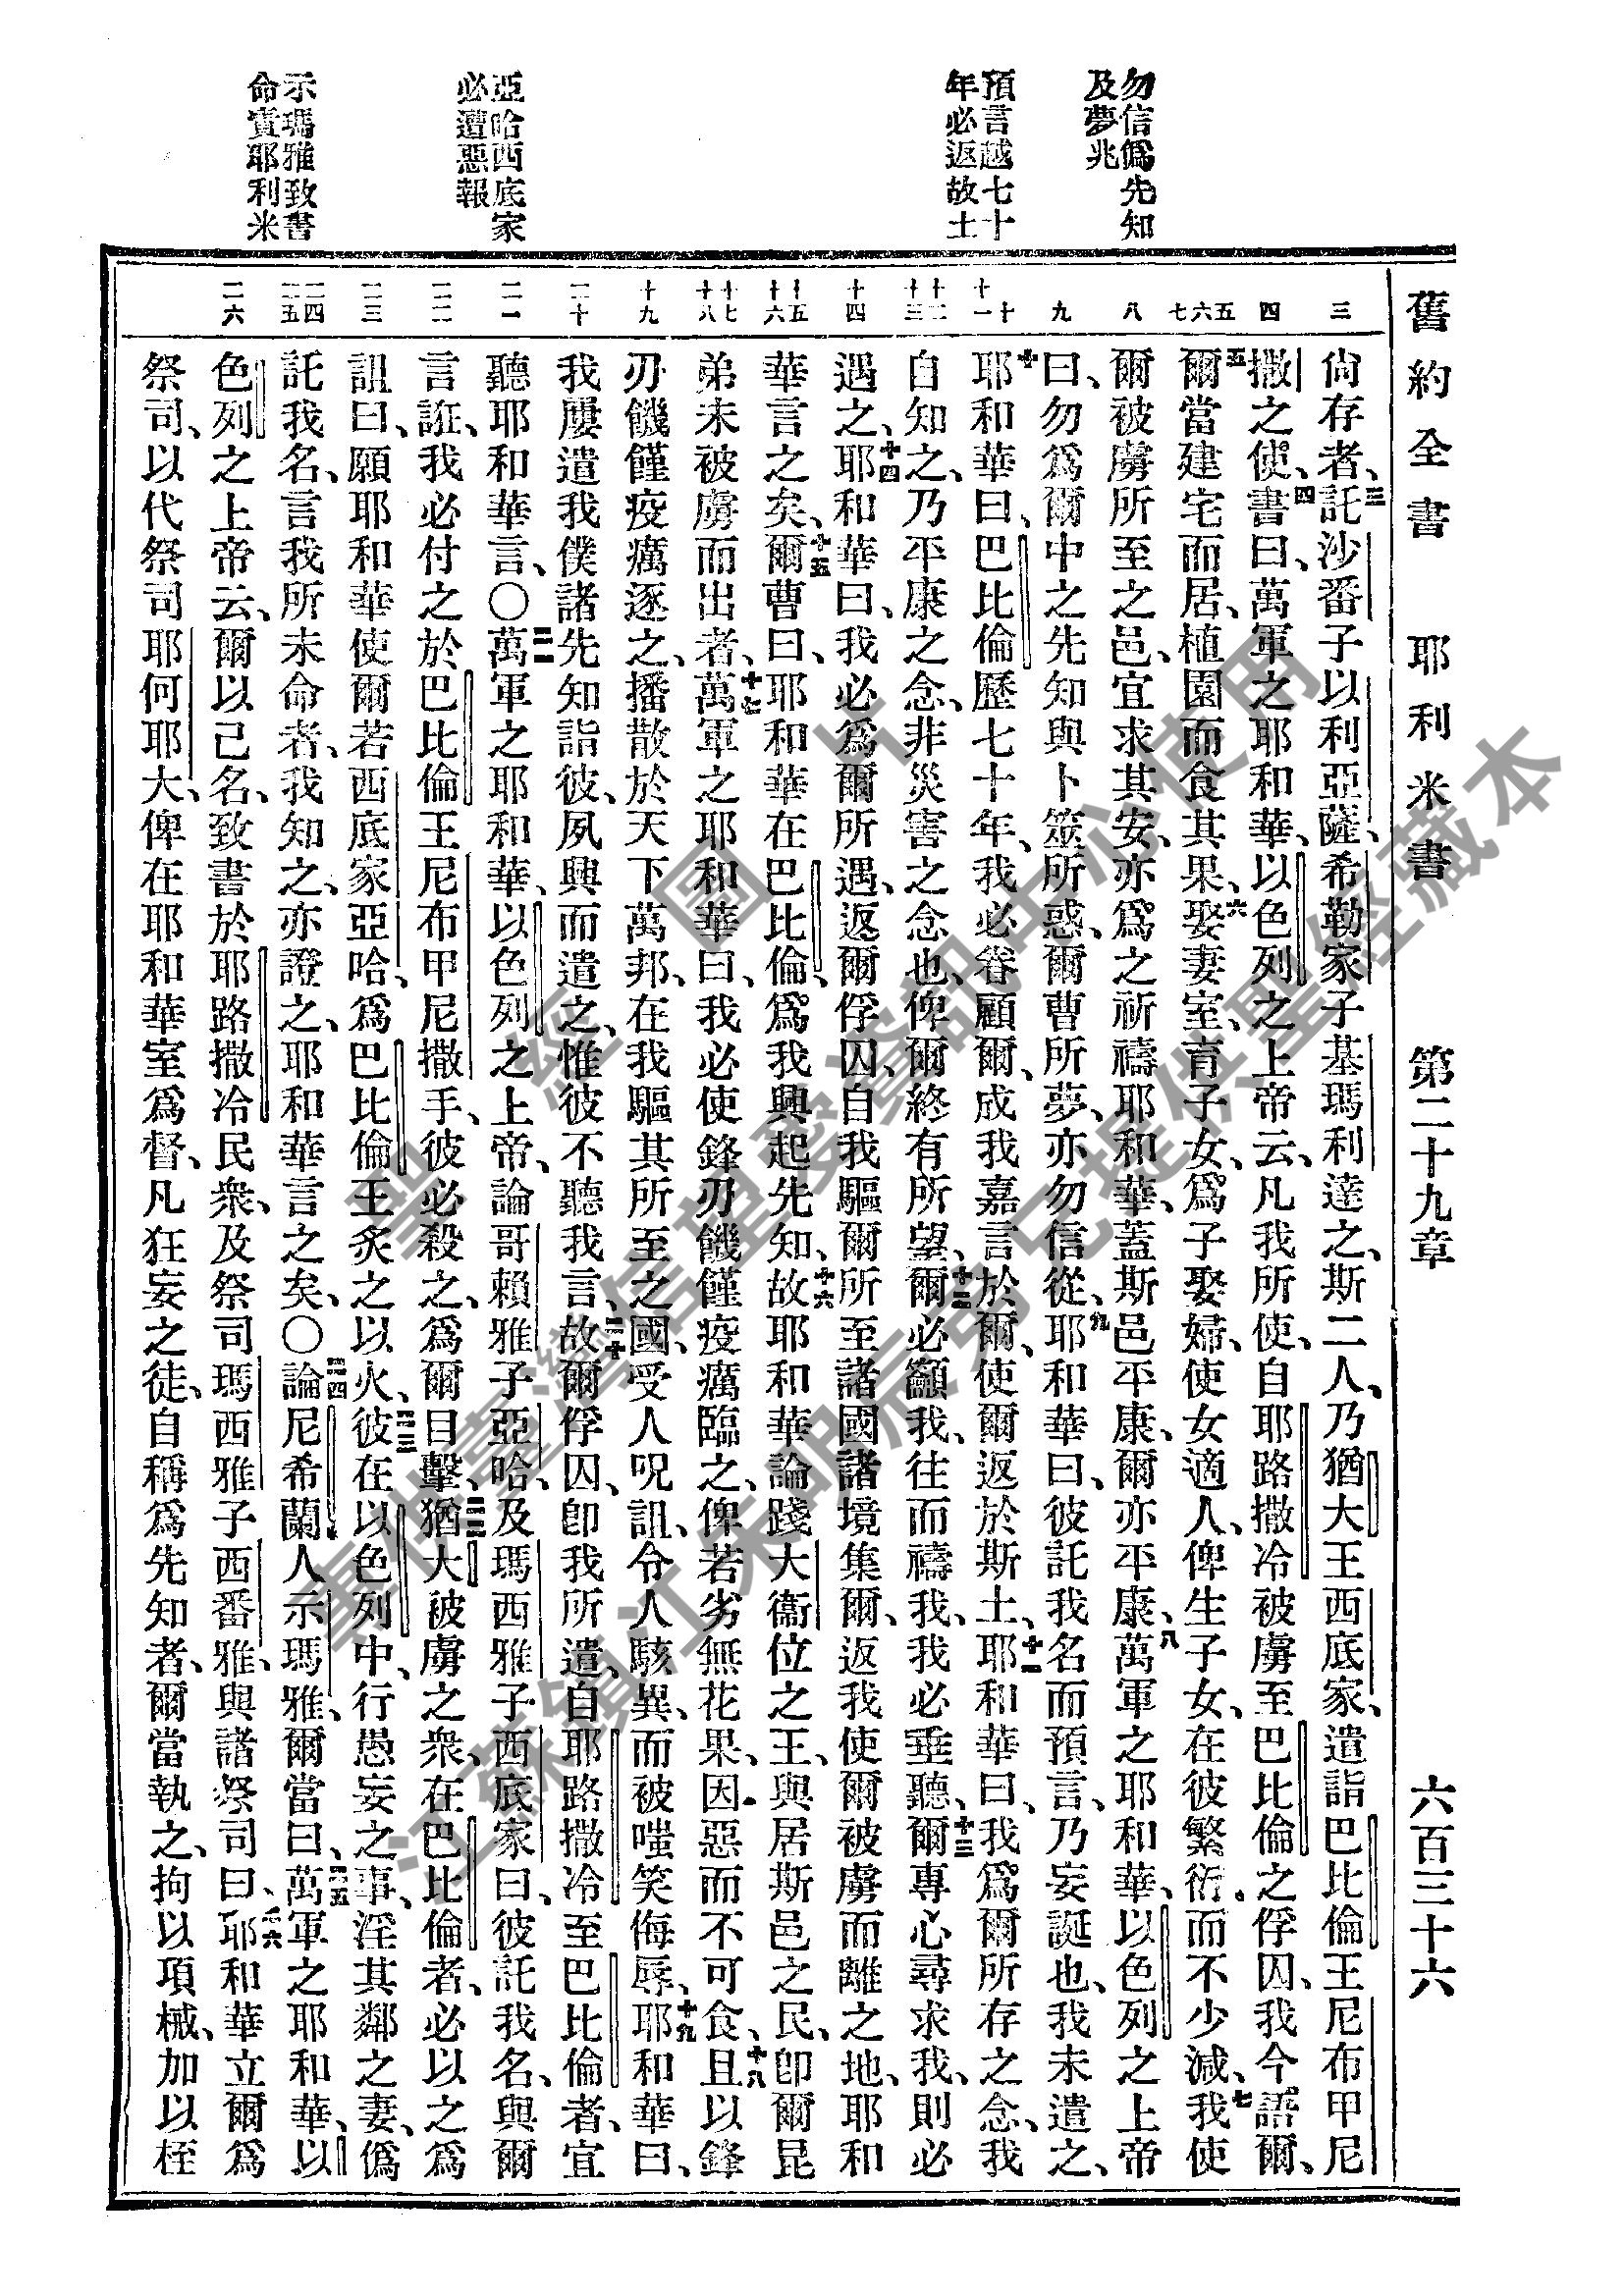 舊約全書 耶利米書 第二十九章 六百三十六
勿信僞先知
及夢兆
預言越七十
年必返故土
亞哈西底家
必遭惡報
示瑪雅致書
命責耶利米
三
四
五 六 七
八
九
十 十一
十二 十三
十四
十五 十六
十七 十八
十九
二十
二一
二二
二三
二四 二五
二六
尙存者、三託沙番子以利亞薩、希勒家子基瑪利達之、斯二人、乃猶大王西底家、遣詣巴比倫王尼布甲尼
撒之使、四書曰、萬軍之耶和華、以色列之上帝云、凡我所使、自耶路撒冷被虜至巴比倫之俘囚、我今語爾、
五爾當建宅而居、植園而食其果、六娶妻室、育子女、爲子娶婦、使女適人、俾生子女、在彼繁衍、而不少減、七我使
爾被虜所至之邑、宜求其安、亦爲之祈禱耶和華、蓋斯邑平康、爾亦平康、八萬軍之耶和華、以色列之上帝
曰、勿爲爾中之先知與卜筮所惑、爾曹所夢、亦勿信從、九耶和華曰、彼託我名而預言、乃妄誕也、我未遣之、
十耶和華曰、巴比倫歷七十年、我必眷顧爾、成我嘉言於爾、使爾返於斯土、十一耶和華曰、我爲爾所存之念、我
自知之、乃平康之念、非災害之念也、俾爾終有所望、十二爾必籲我、往而禱我、我必垂聽、十三爾專心尋求我、則必
遇之、十四耶和華曰、我必爲爾所遇、返爾俘囚、自我驅爾所至諸國諸境集爾、返我使爾被虜而離之地、耶和
華言之矣、十五爾曹曰、耶和華在巴比倫、爲我興起先知、十六故耶和華論踐大衞位之王、與居斯邑之民、卽爾昆
弟未被虜而出者、十七萬軍之耶和華曰、我必使鋒刃饑饉疫癘臨之、俾若劣無花果、因惡而不可食、十八且以鋒
刃饑饉疫癘逐之、播散於天下萬邦、在我驅其所至之國、受人呪詛、令人駭異、而被嗤笑侮辱、十九耶和華曰、
我屢遣我僕諸先知詣彼、夙興而遣之、惟彼不聽我言、二十故爾俘囚、卽我所遣、自耶路撒冷至巴比倫者、宜
聽耶和華言、〇二一萬軍之耶和華、以色列之上帝、論哥賴雅子亞哈、及瑪西雅子西底家曰、彼託我名、與爾
言誑、我必付之於巴比倫王尼布甲尼撒手、彼必殺之、爲爾目擊、二二猶大被虜之衆、在巴比倫者、必以之爲
詛曰、願耶和華使爾若西底家亞哈、爲巴比倫王炙之以火、二三彼在以色列中、行愚妄之事、淫其鄰之妻、僞
託我名、言我所未命者、我知之、亦證之、耶和華言之矣、〇二四論尼希蘭人示瑪雅、爾當曰、二五萬軍之耶和華、以
色列之上帝云、爾以己名、致書於耶路撒冷民衆、及祭司瑪西雅子西番雅、與諸祭司曰、二六耶和華立爾爲
祭司、以代祭司耶何耶大、俾在耶和華室爲督、凡狂妄之徒、自稱爲先知者、爾當執之、拘以項械、加以桎
聖經圖片
專供臺灣信望愛資訊中心使用
江蘇鎮江朱明辰弟兄提供聖經藏本